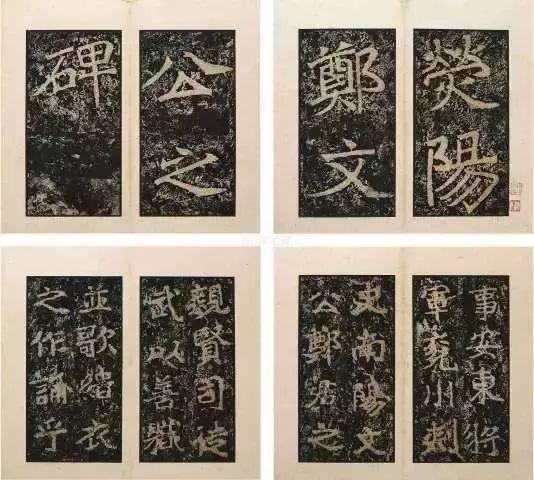 熒陽
鄭文
公之
碑
事安東將
軍兗州刺
史南陽文
公鄭君之
親賢司徒
武以善職
並歌緇衣
之作誦乎